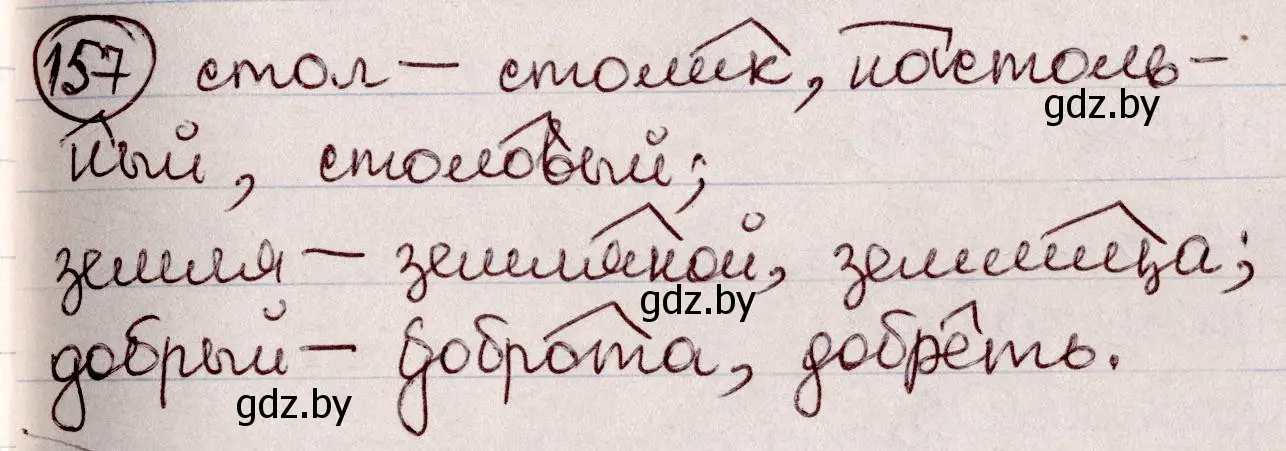 157 стол — столик, настоль-
gdz.by
ный, столовый;
земля — земляной, землица;
gdz.by
добрый — доброта, добреть.
gdz.by